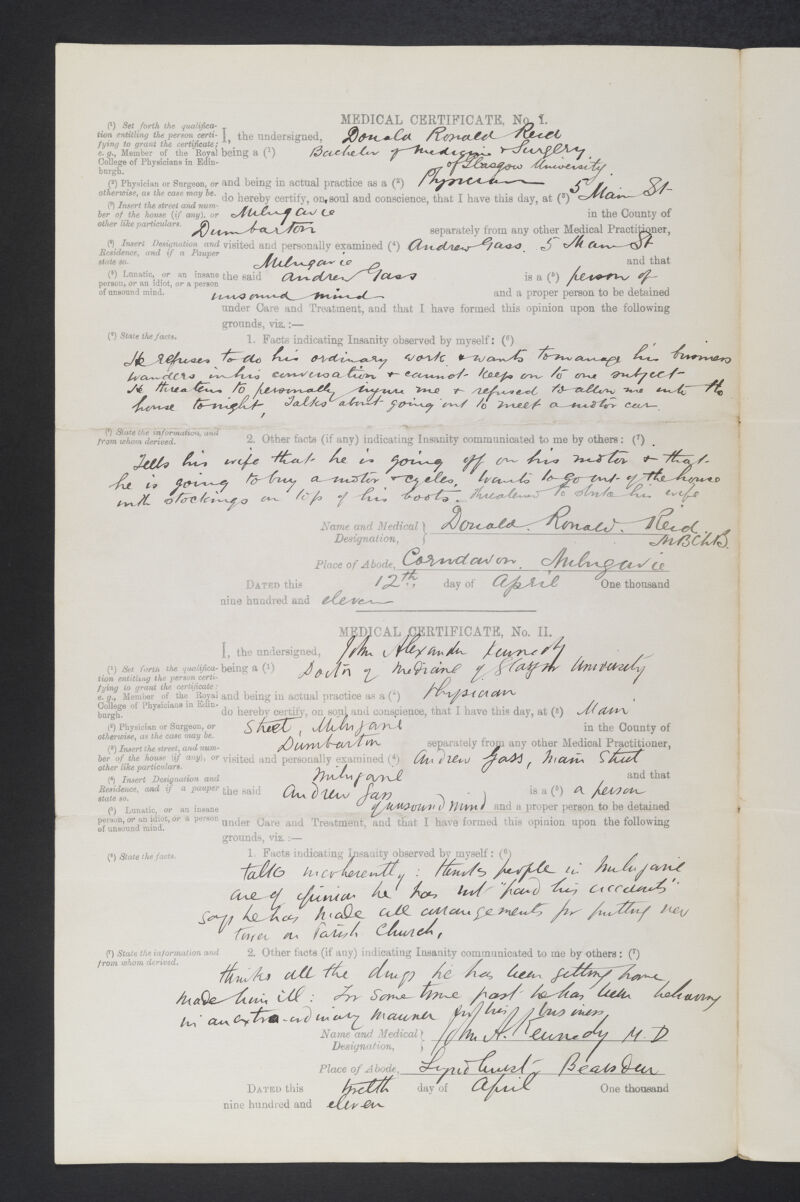 MEDICAL CERTIFICATE, No. I.
(¹) Set forth the qualifica-
tion entitling the person certi-
fying to grant the certificate;
e.g., Member of the Royal
College of Physicians in Edin-
burgh.
I, the undersigned, Donald Ronald Reid
being a (¹) Bachelor of Medicine & Surgery
of Glasgow University
(²) Physician or Surgeon, or
otherwise, as the case may be.
and being in actual practice as a (²) Physician
do hereby certify, on soul and conscience, that I have this day, at (³) 5 Main St
(³) Insert the street and num-
ber of the house (if any), or
other like particulars.
Milngavie in the County of
Dumbarton separately from any other Medical Practitioner,
(⁴) Insert Designation and
Residence, and if a Pauper
state so.
visited and personally examined (⁴) Andrew Gass. 5 Main St
Milngavie and that
(⁵) Lunatic, or an insane
person, or an idiot, or a person
of unsound mind.
the said Andrew Gass is a (⁵) person of
unsound mind and a proper person to be detained
under Care and Treatment, and that I have formed this opinion upon the following
grounds, viz.:—
(⁶) State the facts.
1. Facts indicating Insanity observed by myself: (⁶)
He refuses to do his ordinary work & wants to manage his business
wanders in his conversation & cannot keep on to one subject
He threatens to personally injure me & refused to allow me into the
house tonight, Talks about going out to meet a motor car.
(⁷) State the information, and
from whom derived.
2. Other facts (if any) indicating Insanity communicated to me by others: (⁷)
Tells his wife that he is going off on his motor & that
he is going to buy a motor & cycles. Wants to go out of the house
with stockings on top of his boots. threatened to strike his wife
Name and Medical
Designation, Donald. Ronald. Reid.
M.B.Ch.B.
Place of Abode, Corndavon. Milngavie
DATED this 12th day of April One thousand
nine hundred and eleven
MEDICAL CERTIFICATE, No. II.
I, the undersigned, John Alexander Kennedy
(¹) Set forth the qualifica-
tion entitling the person certi-
fying to grant the certificate:
e.g., Member of the Royal
College of Physicians in Edin-
burgh.
being a (¹) Doctor of Medicine of Glasgow University
and being in actual practice as a (²) Physician
do hereby certify, on soul and conscience, that I have this day, at (³) Main
(²) Physician or Surgeon, or
otherwise, as the case may be.
Street, Milngavie in the County of
Dumbarton separately from any other Medical Practitioner,
(³) Insert the street, and num-
ber of the house (if any), or
other like particulars.
visited and personally examined (⁴) Andrew Gass, Main Street
Milngavie and that
(⁴) Insert Designation and
Residence, and if a pauper
state so.
the said Andrew Gass is a (⁵) a person
of unsound mind and a proper person to be detained
(⁵) Lunatic, or an insane
person, or an idiot, or a person
of unsound mind.
under Care and Treatment, and that I have formed this opinion upon the following
grounds, viz.:—
(⁶) State the facts.
1. Facts indicating Insanity observed by myself: (⁶)
talks incoherently: thinks people in Milngavie
are of opinion he has not "paid his accounts"
says he has made all arrangements for putting new
tower on Parish Church.
(⁷) State the information and
from whom derived.
2. Other facts (if any) indicating Insanity communicated to me by others: (⁷)
thinks all the drugs he has been getting have
made him ill: For some time past he has been behaving
in an extra-ordinary manner in his business
Name and Medical
Designation, John A. Kennedy M.D
Place of Abode, Lyndhurst Bearsden
DATED this twelfth day of April One thousand
nine hundred and eleven